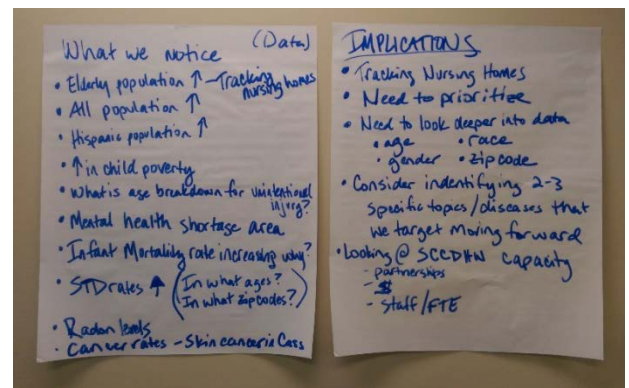 What we notice (Data)
• Elderly population ↑ - Tracking
nursing homes
• All population ↑
• Hispanic population ↑
• ↑ in child poverty
• What is age breakdown for unintentional
injury?
• Mental health shortage area
• Infant Mortality rate increasing why?
• STD rates ↑ (In what ages?
In what zip codes?)
• Radon levels
• Cancer rates - Skin cancer in Cass
IMPLICATIONS
• Tracking Nursing Homes
• Need to prioritize
• Need to look deeper into data
• age • race
• gender • zip code
• Consider indentifying 2-3
specific topics/diseases that
we target moving forward
• Looking @ SCCDHN capacity
- partnerships
- $
- Staff/FTE